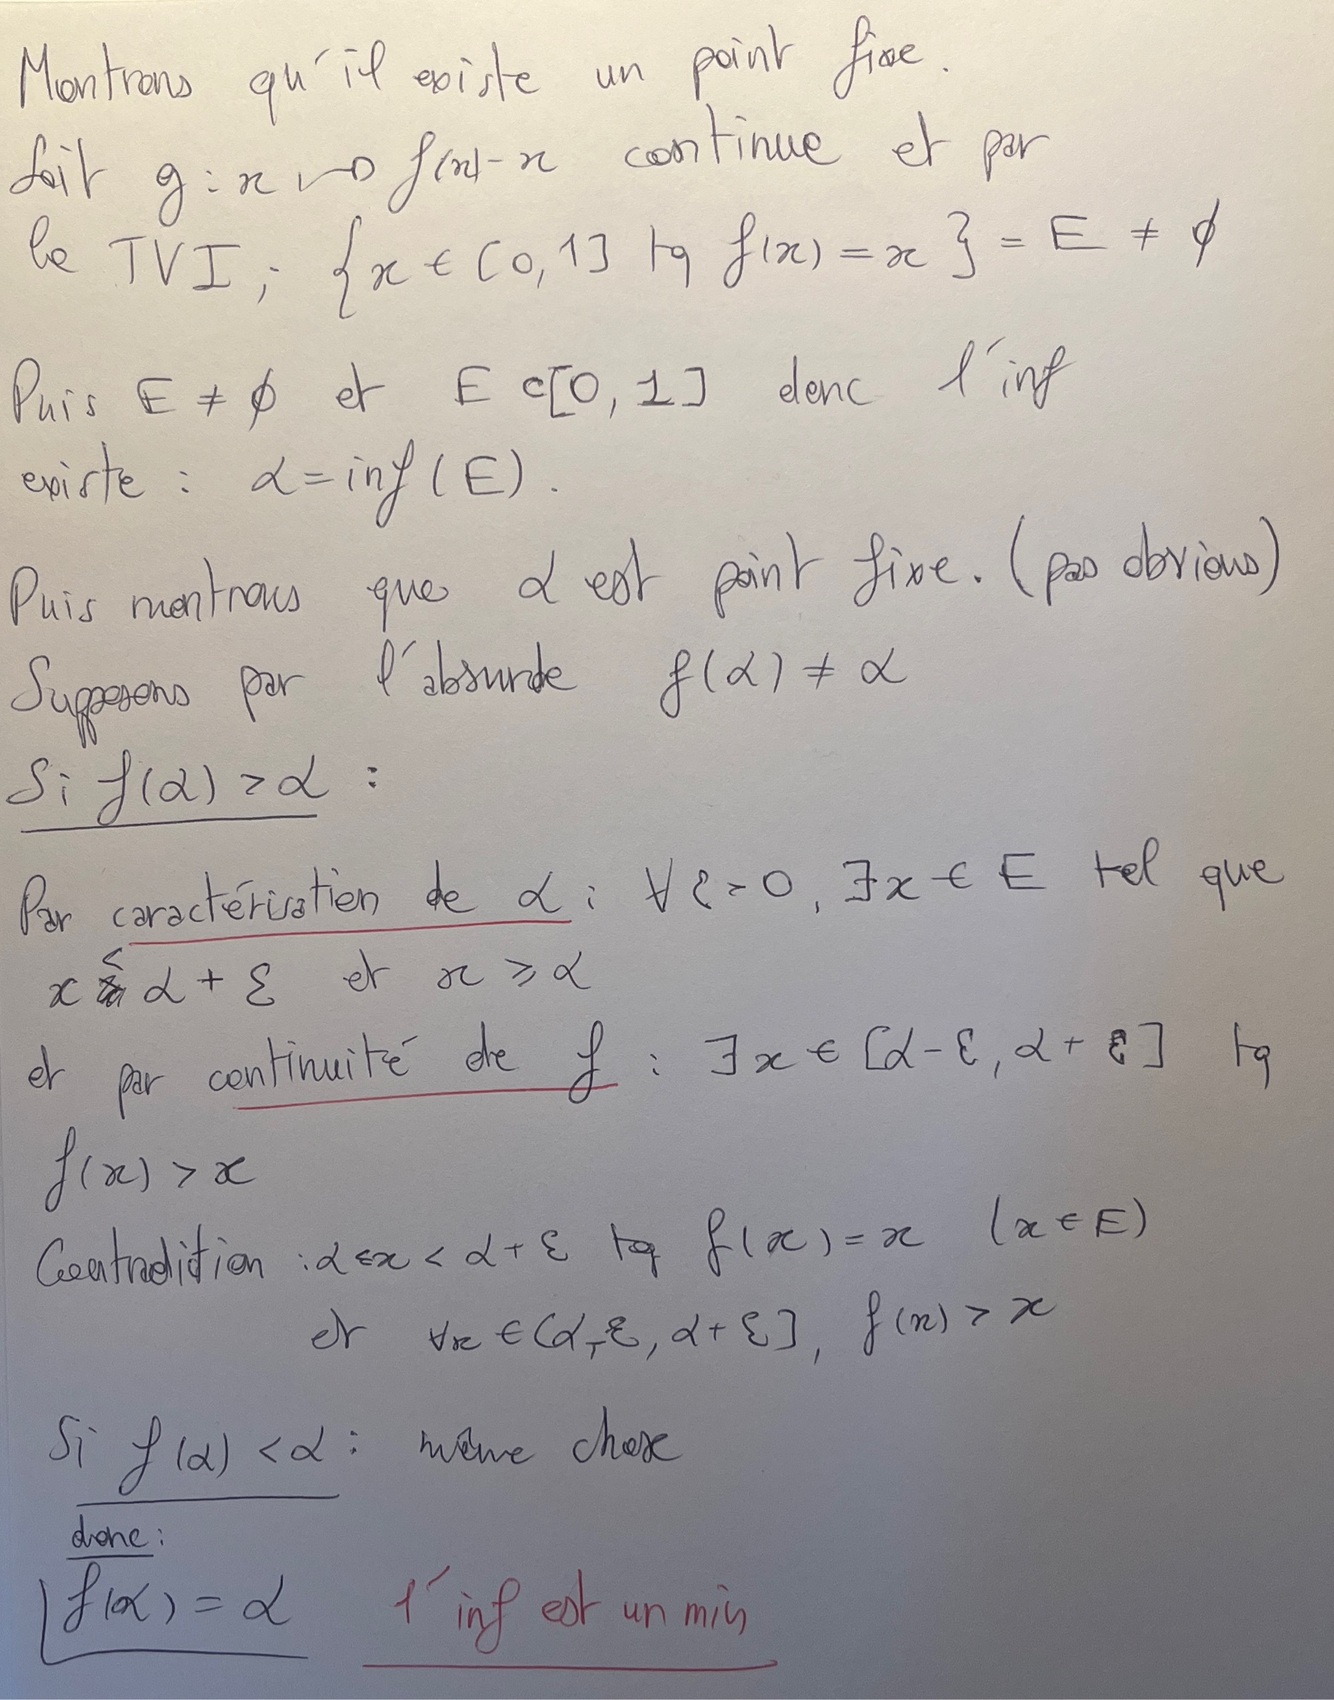 Montrons qu'il existe un point fixe.
Soit g : x ↦ f(x) - x continue et par
le TVI, {x ∈ [0,1] tq f(x) = x} = E ≠ ∅
Puis E ≠ ∅ et E ⊂ [0,1] donc l'inf
existe : α = inf(E).
Puis montrons que α est point fixe. (pas obvious)
Supposons par l'absurde f(α) ≠ α
Si f(α) > α :
Par caractérisation de α : ∀ε>0, ∃x ∈ E tel que
x < α + ε et x ≥ α
et par continuité de f : ∃x ∈ [α-ε, α+ε] tq
f(x) > x
Contradiction : α ≤ x < α + ε tq f(x) = x (x ∈ E)
et ∀x ∈ [α-ε, α+ε], f(x) > x
Si f(α) < α : même chose
donc :
f(α) = α l'inf est un min